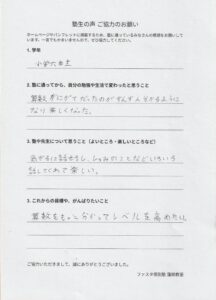 塾生の声 ご協力のお願い
ホームページやパンフレットに掲載するため、塾に通っているみなさんの感想をお願いして
います。一言でもかまいませんので、ぜひ協力してください。
1. 学年
小学六年生
2. 塾に通ってから、自分の勉強や生活で変わったと思うこと
算数がにがてだったのがだんだん分かるように
なり楽しくなった。
3. 塾や先生について思うこと（よいところ・楽しいところなど）
気がるに話せるし、しゅみのことなどいろいろ
話してくれて楽しい。
3. これからの目標や、がんばりたいこと
算数をもっと分かってレベルを高めたい。
ご協力いただきまして、誠にありがとうございました。
ファスタ個別塾 蒲郡教室